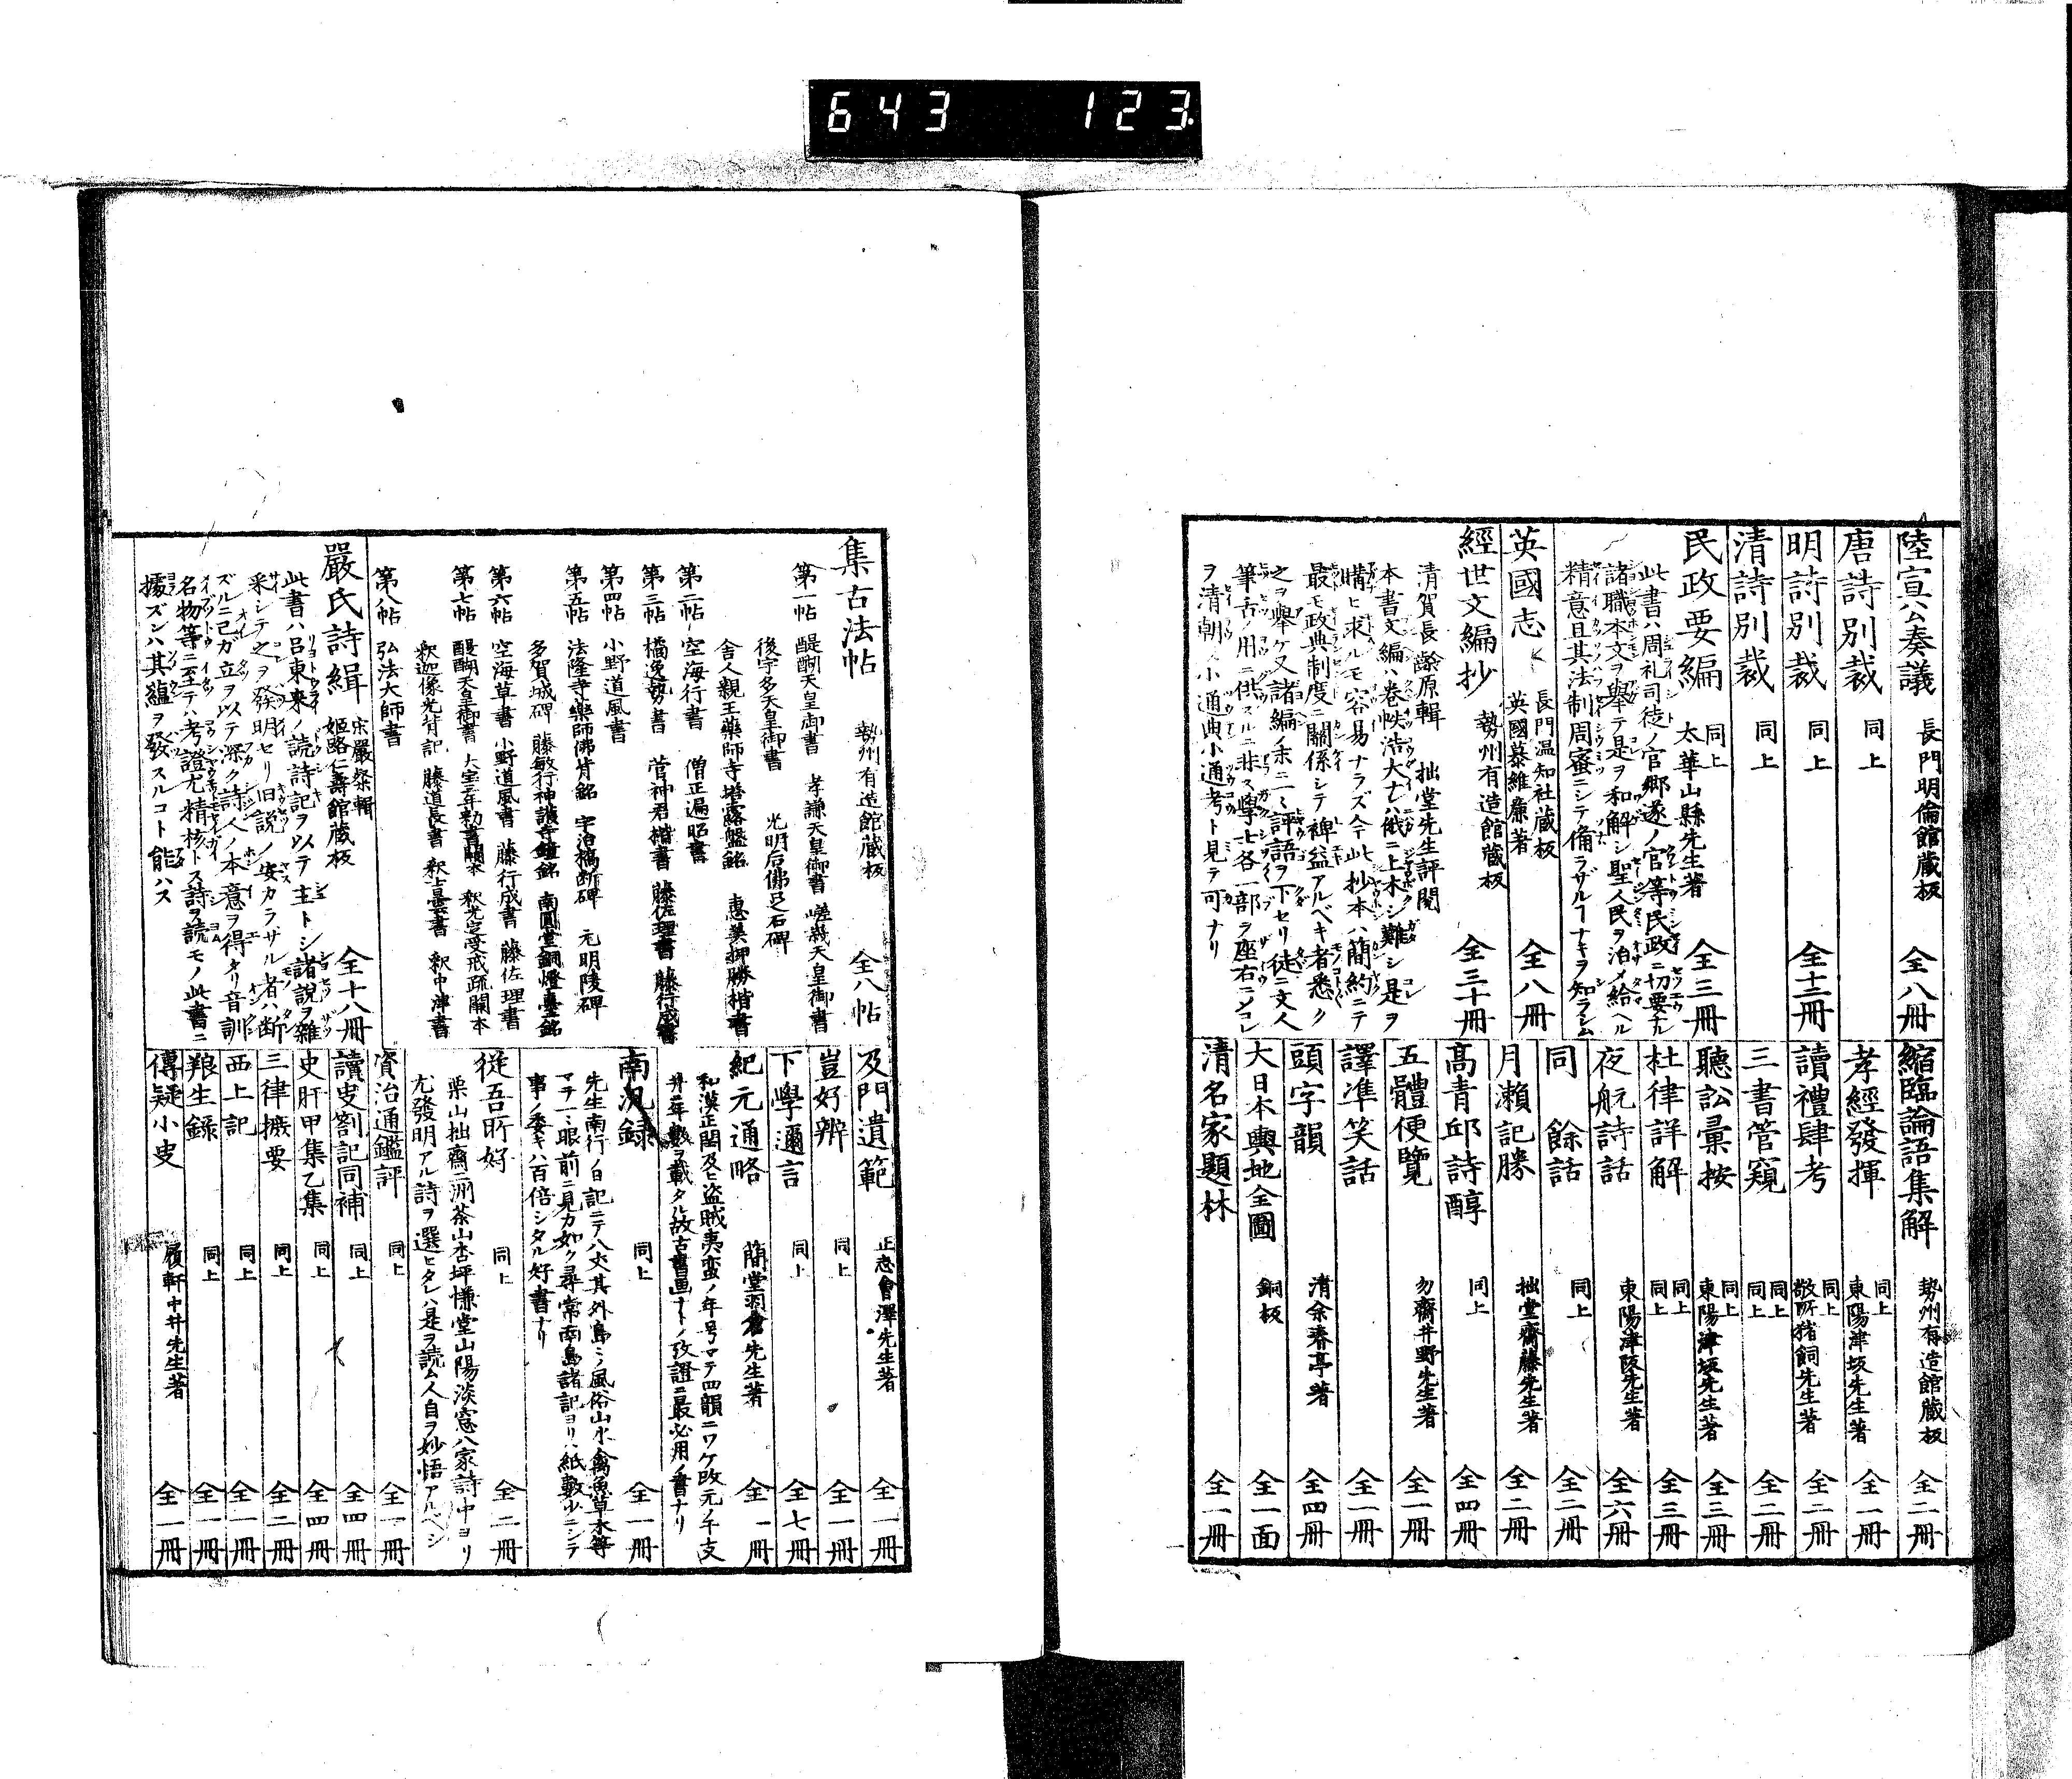 643 123
陸宣公奏議 長門明倫館蔵板 全八冊
唐詩別裁 同上
明詩別裁 同上 全十二冊
清詩別裁 同上
民政要編 同上 太華山縣先生著 全三冊
此書ハ周礼司徒ノ官郷遂ノ官等民政ニ切要ナル
諸職本文ヲ舉テ是ヲ和解シ聖人民ヲ治メ給ヘル
精意且其法制周蜜ニシテ備ラザルヿナキヲ知ラシム
英國志 長門温知社蔵板 英國慕維廉著 全八冊
經世文編抄 勢州有造館蔵板 全三十冊
清賀長齡原輯 拙堂先生評閲
本書文編ハ巻帙浩大ナレハ俄ニ上木シ難シ是ヲ
購ヒ求ルモ容易ナラズ今此抄本ハ簡約ニテ
最モ政典制度ニ關係シテ裨益アルベキ者悉ク
之ヲ舉ケ又諸編ノ末ニ評語ヲ下セリ徒ニ文人
筆舌ノ用ニ供スルニ非ス學士各一部ヲ座右ニシコレ
ヲ清朝ノ小通典小通考ト見テ可ナリ
縮臨論語集解 勢州有造館蔵板 全二冊
孝經發揮 同上 東陽津坂先生著 全一冊
讀禮肆考 同上 敬所猪飼先生著 全二冊
三書管窺 同上 同上 全二冊
聽訟彙按 同上 東陽津坂先生著 全三冊
杜律詳解 同上 同上 全三冊
夜航詩話 東陽津阪先生著 全六冊
同 餘話 同上 全二冊
月瀬記勝 拙堂齋藤先生著 全二冊
高青邱詩醇 同上 全四冊
五體便覽 勿齋井野先生著 全一冊
譯準笑話 全一冊
頭字韻 清余春亭著 全四冊
大日本輿地全圖 銅板 全一面
清名家題林 全一冊
集古法帖 勢州有造館蔵板 全八帖
第一帖 醍醐天皇御書 孝謙天皇御書 嵯峨天皇御書
後宇多天皇御書 光明后佛足石碑
舍人親王藥師寺塔露盤銘 惠美押勝楷書
第二帖 空海行書 僧正遍昭書
第三帖 橘逸勢書 菅神君楷書 藤佐理書 藤行成書
第四帖 小野道風書
第五帖 法隆寺藥師佛背銘 宇治橋断碑 元明陵碑
多賀城碑 藤敏行神護寺鐘銘 南圓堂銅燈臺銘
第六帖 空海草書 小野道風書 藤行成書 藤佐理書
第七帖 醍醐天皇御書 大宝三年勅書闕本 釈光定受戒疏闕本
釈迦像光背記 藤道長書 釈士曇書 釈中津書
第八帖 弘法大師書
嚴氏詩緝 宋嚴粲輯 姫路仁壽館蔵板 全十八冊
此書ハ呂東来ノ読詩記ヲ以テ主トシ諸説ヲ雜
采シテ之ヲ發明セリ旧説ノ安カラサル者ハ断
ズルニ己ガ立ヲ以テ深ク詩人ノ本意ヲ得タリ音訓
名物等ニ至テハ考證尤精核トス詩ヲ読モノ此書ニ
據ズンハ其蘊ヲ發スルコト能ハス
及門遺範 正志會澤先生著 全一冊
豈好辨 同上 全一冊
下學邇言 同上 全七冊
紀元通略 簡堂羽倉先生著 全一冊
和漢正閏及ヒ盗賊夷蛮ノ年号マテ四韻ニワケ改元ノ干支
并ニ年數ヲ載タル故古書画ナトノ攷證ニ最必用ノ書ナリ
南汎録 同上 全一冊
先生南行ノ日記ニテ八丈其外島ミノ風俗山水禽魚草木等
マヲ一ミ眼前ニ見カ如ク尋常南島諸記ヨリハ紙數少ニシテ
事ノ委キハ百倍シタル好書ナリ
従吾所好 同上 全二冊
栗山拙齋二洲茶山杏坪慊堂山陽淡窓八家詩中ヨリ
尤發明アル詩ヲ選ヒタレハ是ヲ読ム人自ヲ妙悟アルベシ
資治通鑑評 同上 全一冊
讀史劄記同補 同上 全四冊
史肝甲集乙集 同上 全四冊
三律摭要 同上 全二冊
西上記 同上 全一冊
羪生録 同上 全一冊
傳疑小史 履軒中井先生著 全一冊